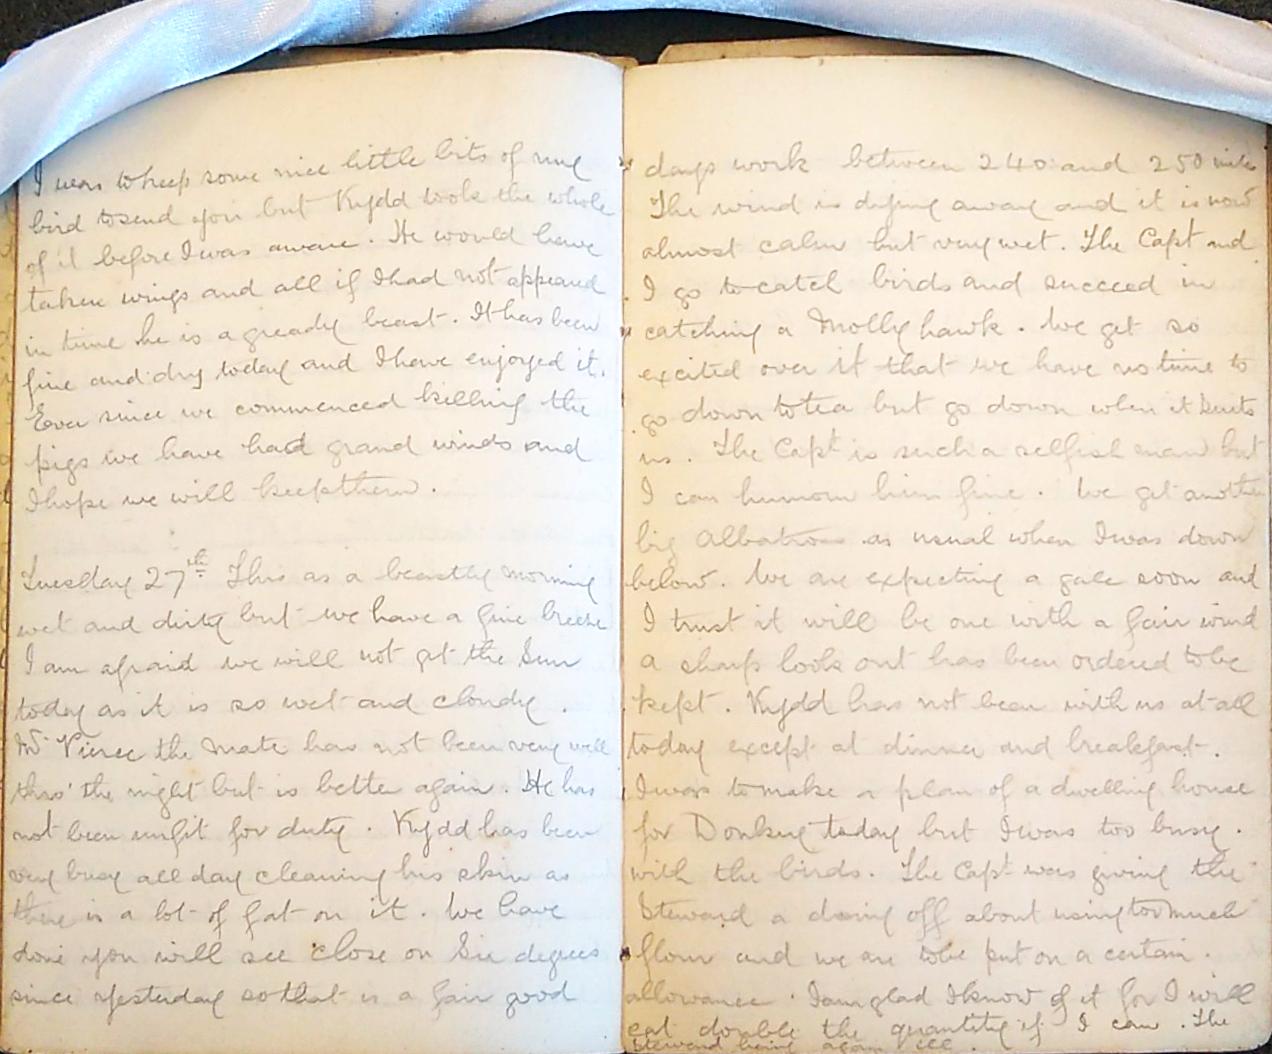 I was to keep some nice little bits of my
bird to send you but Kydd took the whole
of it before I was aware. He would have
taken wings and all if I had not appeared
in time he is a greedy beast. It has been
fine and dry today and I have enjoyed it.
Ever since we commenced killing the
pigs we have had grand winds and
I hope we will keep them.
Tuesday 27th This as a beastly morning
wet and dirty but we have a fine breeze
I am afraid we will not get the Sun
today as it is so wet and cloudy.
Mr Pierce the Mate has not been very well
thro' the night but is better again. He has
not been unfit for duty. Kydd has been
very busy all day cleaning his skin as
there is a lot of fat on it. We have
done you will see close on Six degrees
since yesterday so that is a fair good
days work between 240 and 250 miles
The wind is dying away and it is now
almost calm but very wet. The Capt and
I go to catch birds and succeed in
catching a Molly hawk. We get so
excited over it that we have no time to
go down to tea but go down when it suits
us. The Capt is such a selfish man but
I can humour him fine. We get another
big Albatross as usual when I was down
below. We are expecting a gale soon and
I trust it will be one with a fair wind
a sharp look out has been ordered to be
kept. Kydd has not been with us at all
today except at dinner and breakfast.
I was to make a plan of a dwelling house
for Donkey today but I was too busy.
with the birds. The Capt was giving the
Steward a dosing off about using too much
flour and we are to be put on a certain.
allowance. I am glad I know of it for I will
eat double the quantity if I can. The
Steward being again ill.